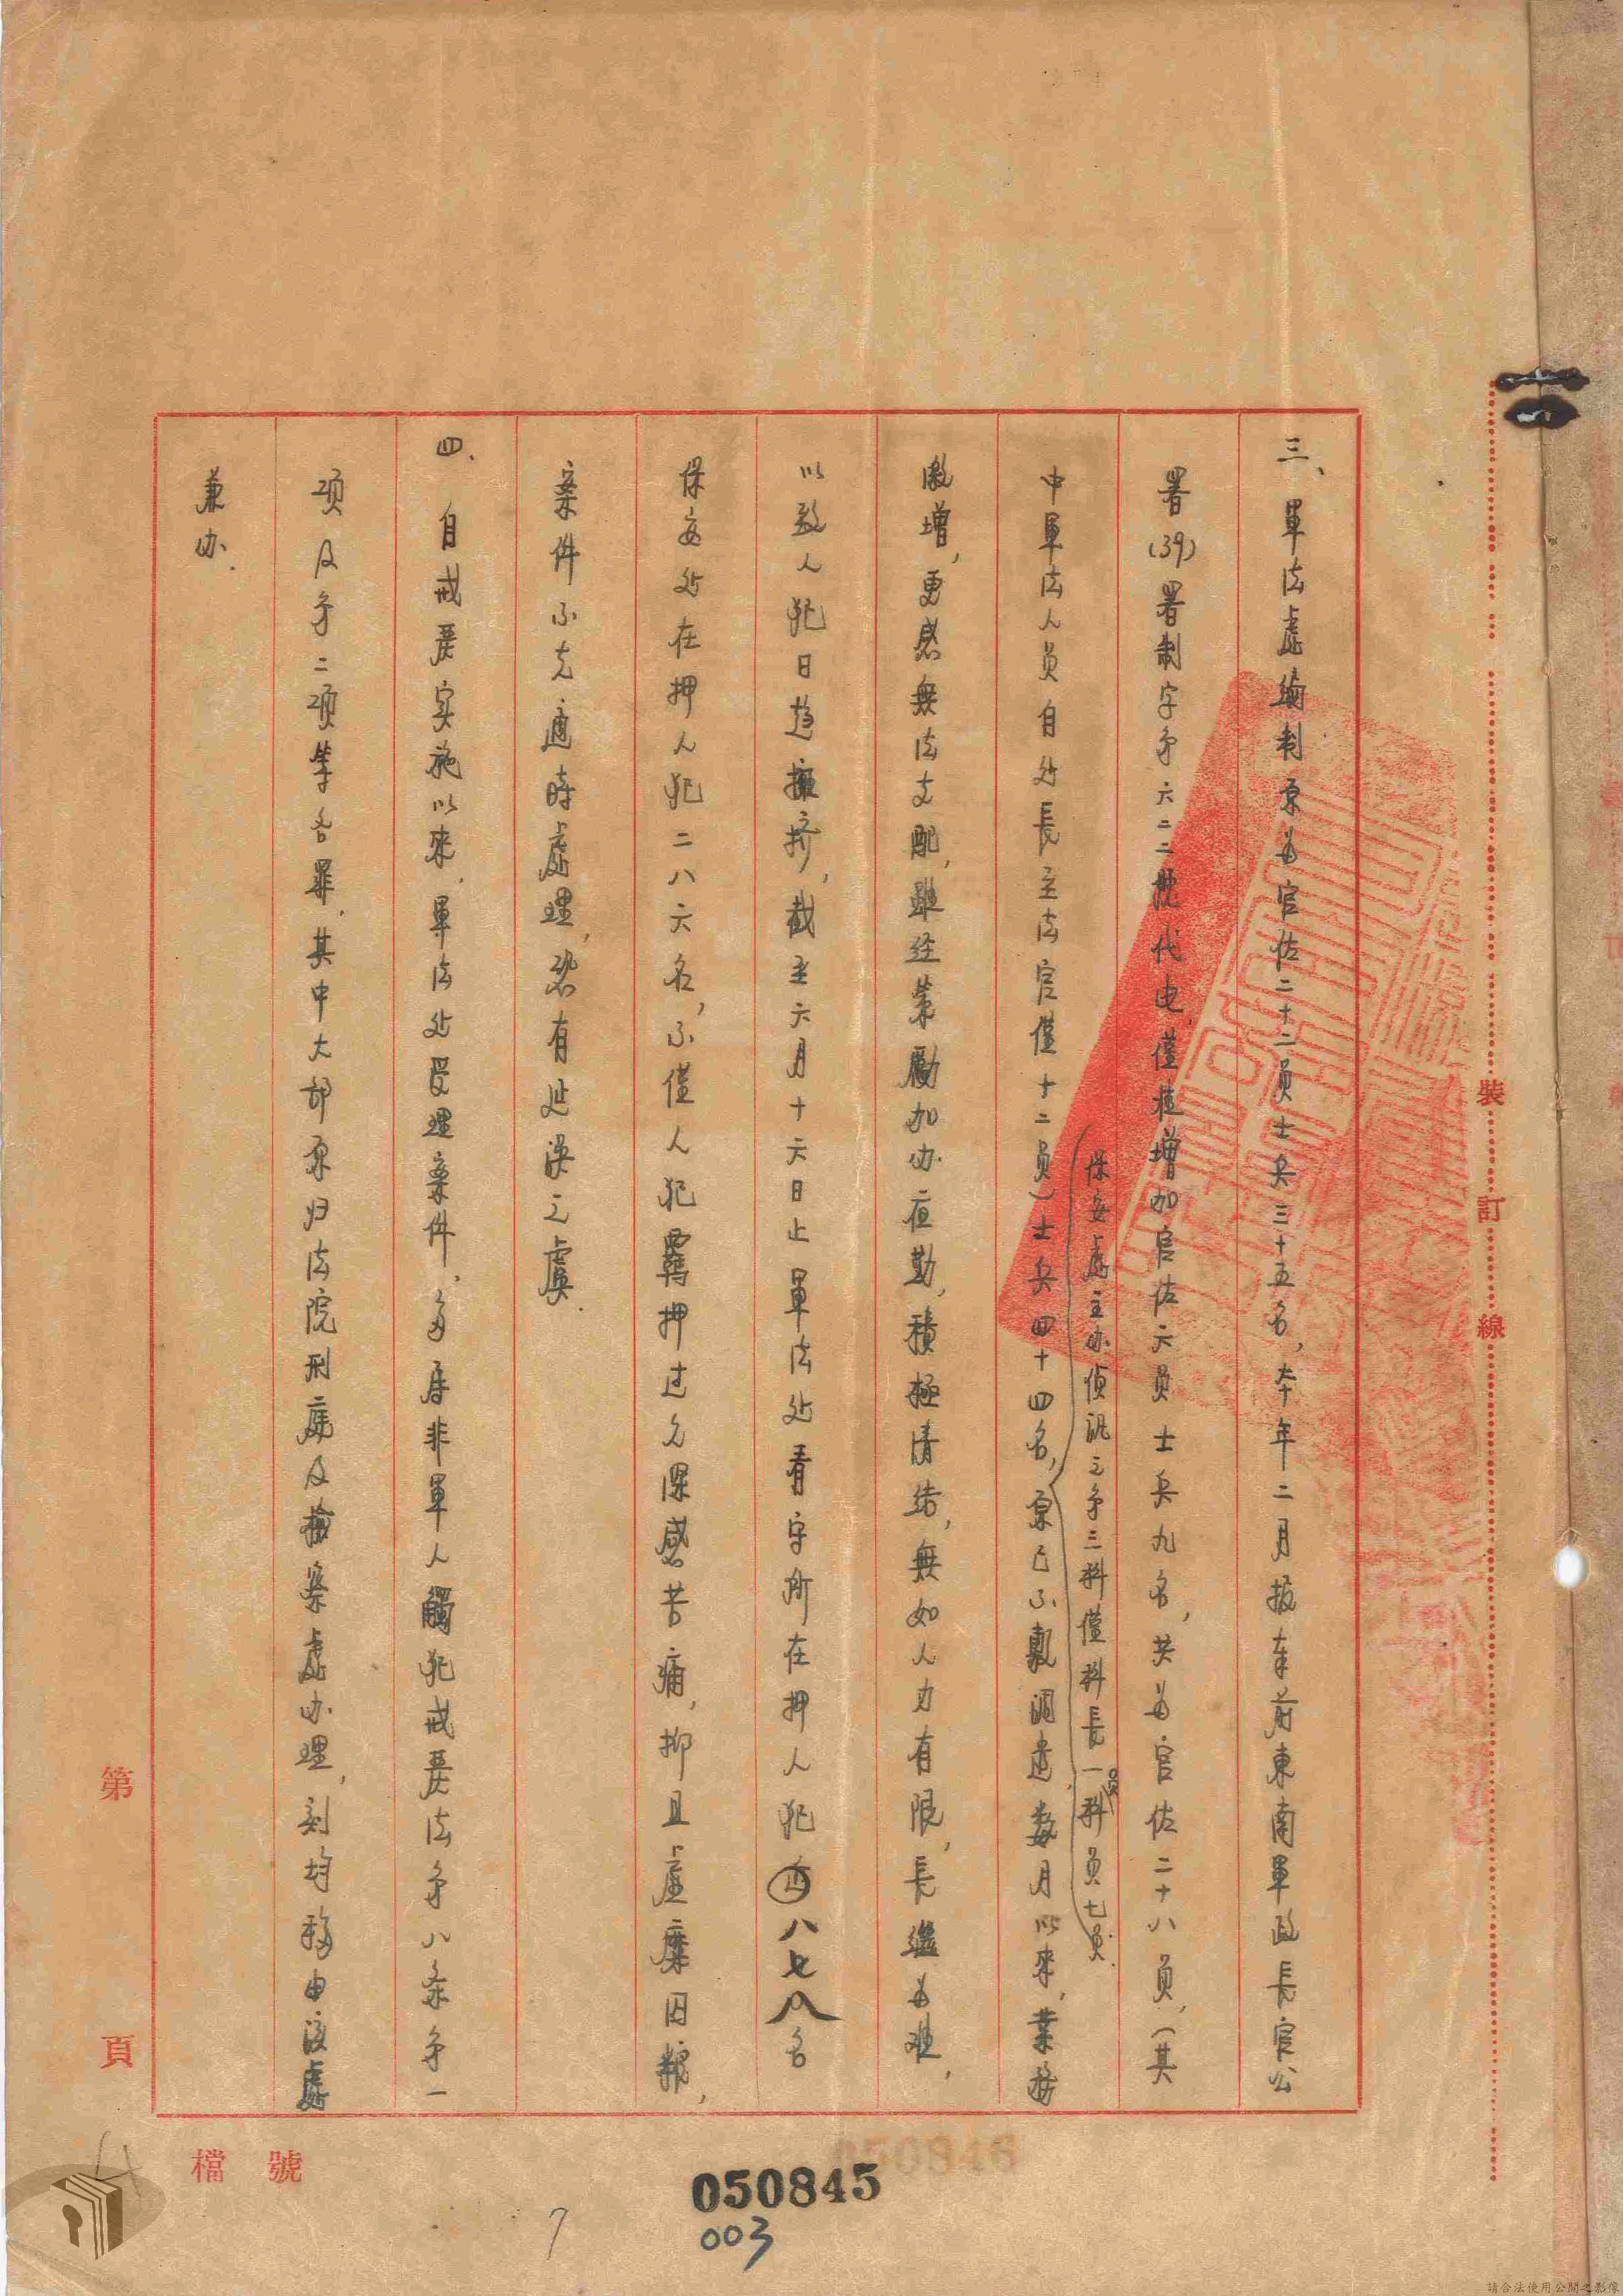 三、軍法處編制原為官佐二十二員士兵三十五名，本年二月报奉前東南軍政長官公
署(39)署制字第六二二號代电，僅核增加官佐六員士兵九名，共為官佐二十八員，（其
中軍法人員自处長主法官僅十二員）士兵四十四名，原已不敷調遣，数月以來，業務
保安處主办偵訊之第三科僅科長一員科員七員。
激增，更感無法支配，雖经策勵加办夜勤，積極清结，無如人力有限，長繼為难，
以致人犯日趋擁挤，截至六月十六日止軍法处看守所在押人犯八七八名
保安处在押人犯二八六名，不僅人犯羈押过久深感苦痛，抑且虛糜囚粮，
案件不克適時處理，恐有延误之虞．
四、自戒严实施以來，軍法处受理案件，多屬非軍人觸犯戒严法第八条第一
项及第二项等各罪，其中大部原归法院刑庭及檢察處办理，刻均移由该處
兼办．
裝
訂
線
第
頁
檔號
050846
050845
003
7
請合法使用公開之影像